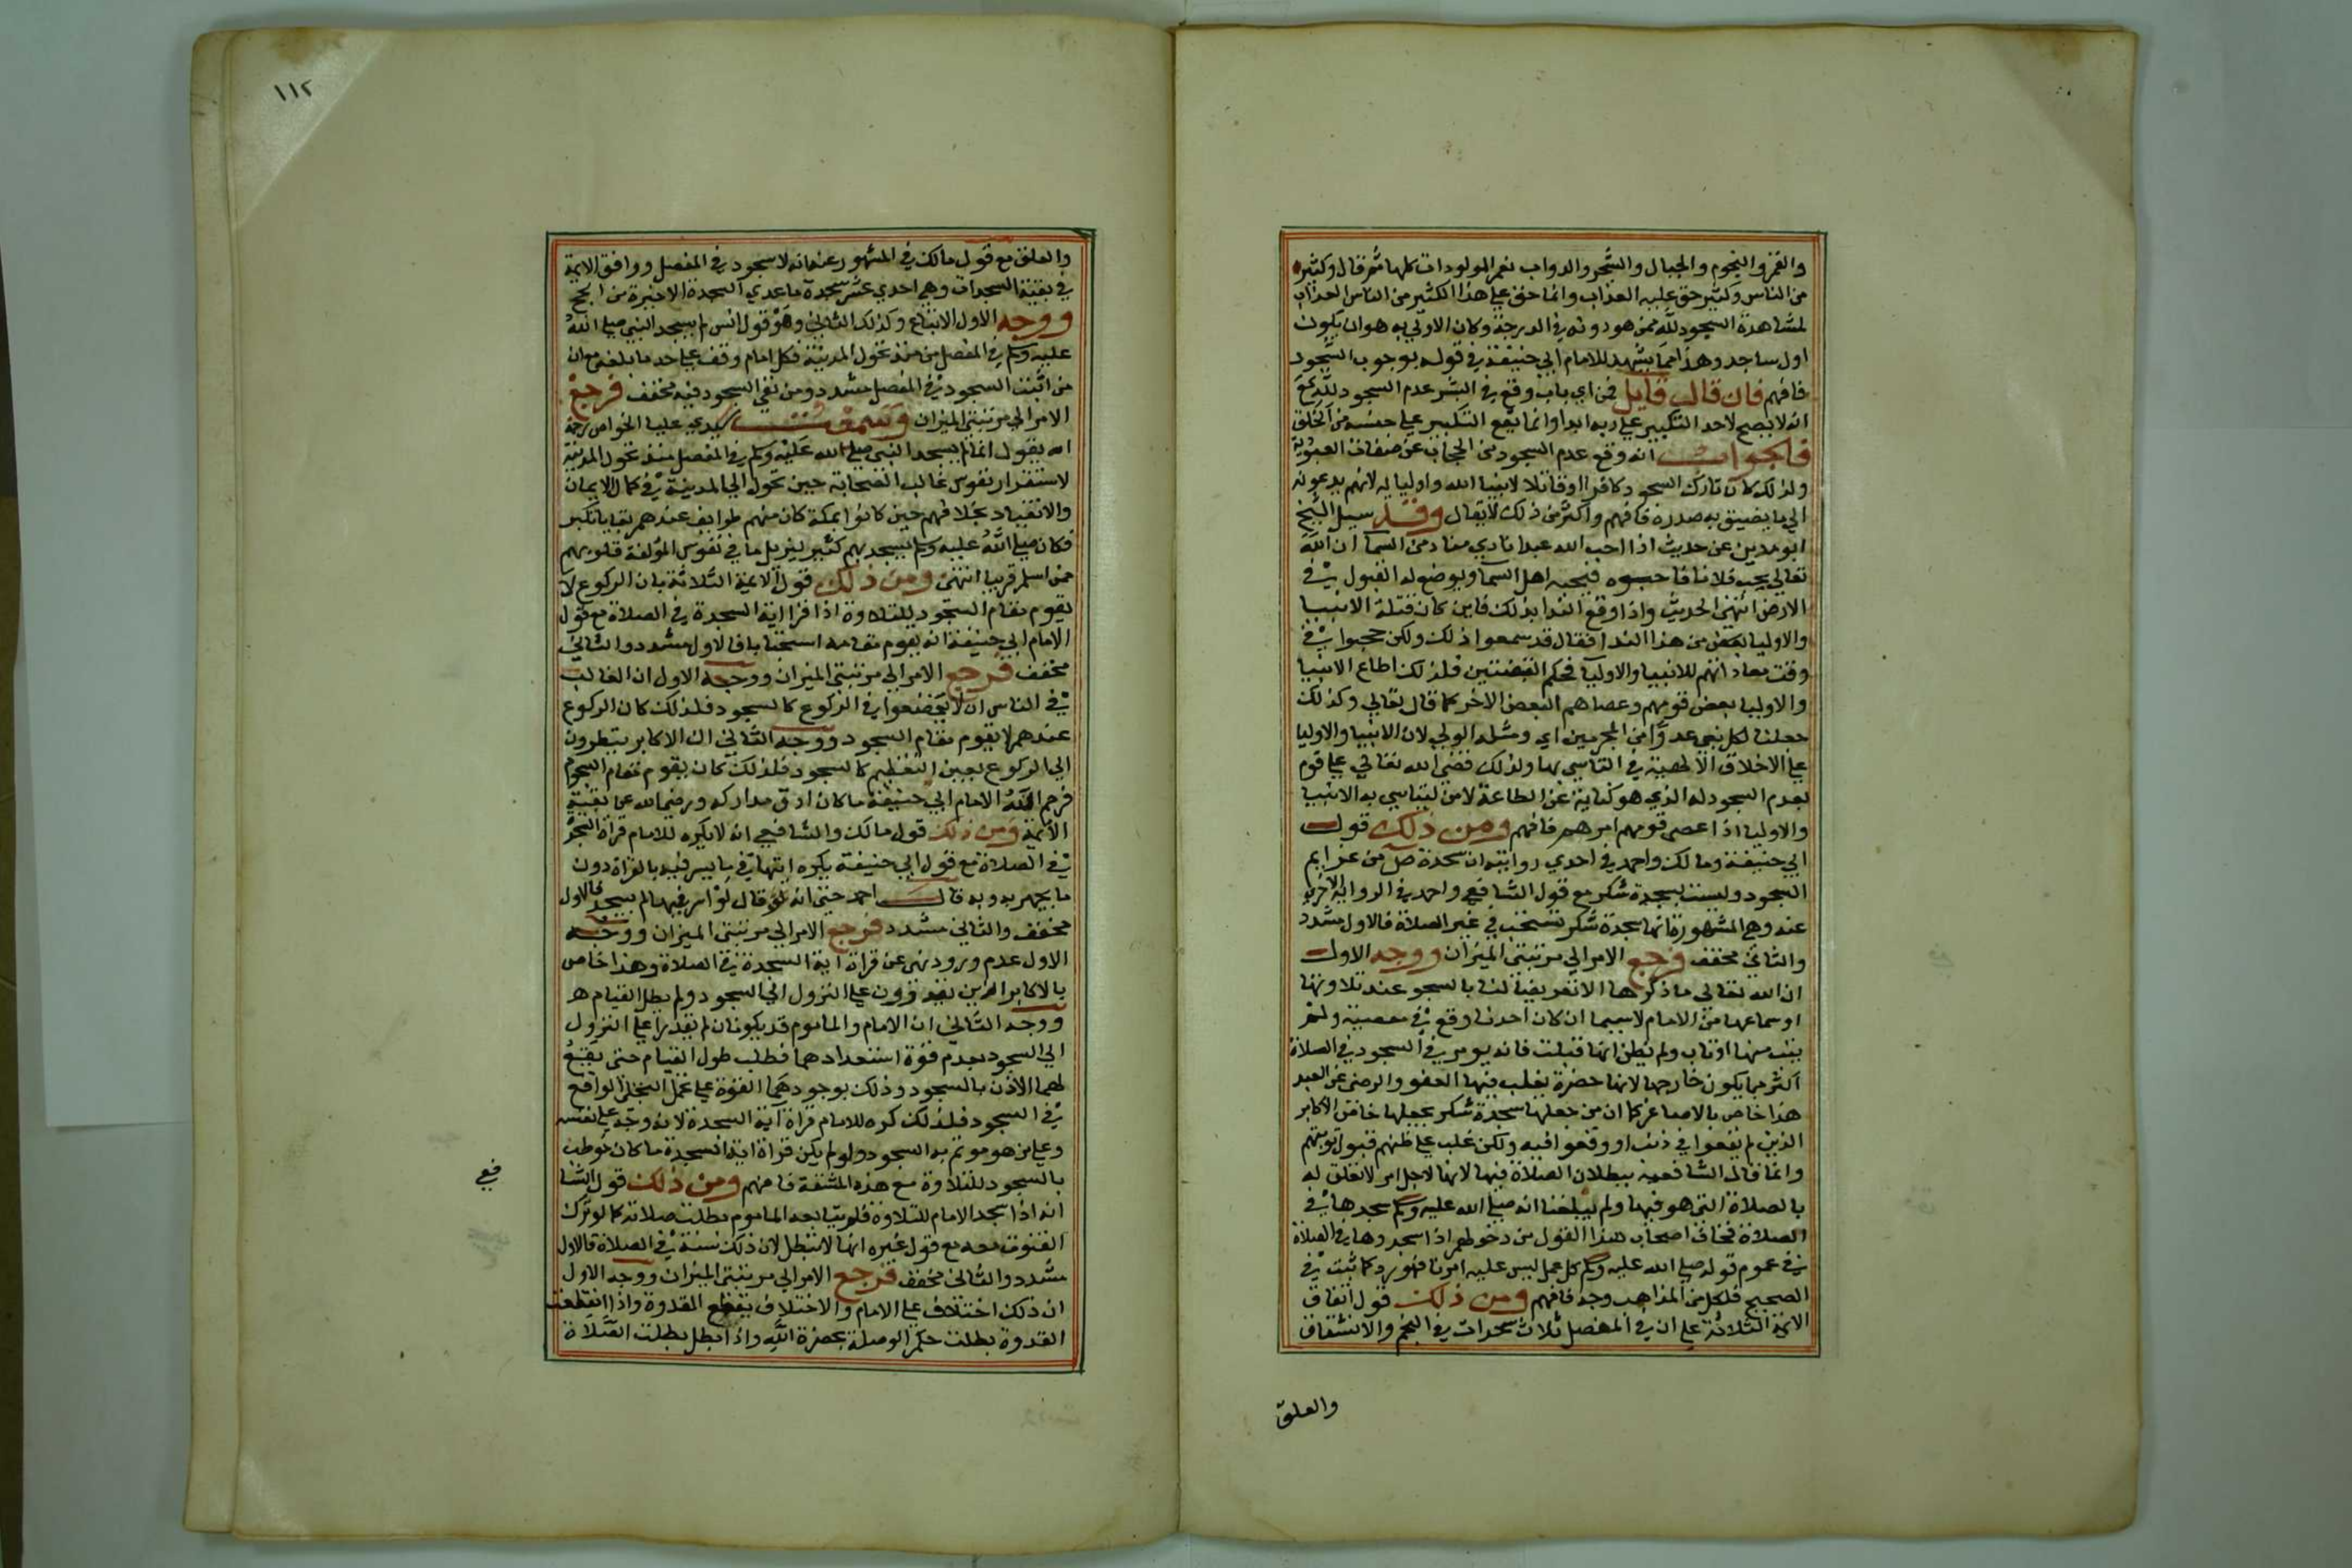 والقمر والنجوم والجبال والشجر والدواب نعم المولودات كلها ثم قال وكثير
من الناس وكثير حق عليه العذاب وانما حق علي هذا الكثير من الناس العذاب
لمشاهدة السجود لله ممن هو دونه في الدرجة وكان الاولي به هو ان يكون
اول ساجد وهذا مما يشهد للامام ابي حنيفة في قوله بوجوب السجود
فافهم فان قال قايل فمن اي باب وقع في البشر عدم السجود لله مع
انه لا يصح لاحد التكبير علي ربه ابدا وانما يقع التكبير علي جنسه من الخلق
فالجواب انه وقع عدم السجود من الحجاب عن صفات العبودية
ولذلك كان تارك السجود كافرا او قاتلا لانبيا الله واوليايه لانهم يدعونه
الي ما يضيق به صدره فافهم واكثر من ذلك لا يقال وقد سيل الشيخ
ابو مدين عن حديث اذا احب الله عبدا نادي مناد من السما ان الله
تعالي يحب فلانا فاحبوه فيحبه اهل السما ويوضع له القبول في
الارض انتهي الحديث واذا وقع الندا بذلك فاين كان قتلة الانبيا
والاوليا بعض من هذا الندا فقال قد سمعوا ذلك ولكن حجبوا في
وقت معاداتهم للانبيا والاوليا بحكم القبضتين فلذلك اطاع الانبيا
والاوليا بعض قومهم وعصاهم البعض الاخر كما قال تعالي وكذلك
جعلنا لكل نبي عدوا من المجرمين اي ومثله الولي لان الانبيا والاوليا
علي الاخلاق الالهية في التاسي بها ولذلك قضي الله تعالي علي قوم
بعدم السجود له الذي هو كناية عن الطاعة لامن ليتاسي به الانبيا
والاوليا اذا عصى قومهم امرهم فافهم ومن ذلك قول
ابي حنيفة ومالك واحمد في احدي روايتيه ان سجدة ص من عزايم
السجود وليست بسجدة شكر مع قول الشافعي واحمد في الرواية الاخري
عنه وهي المشهورة انها سجدة شكر تستحب في غير الصلاة فالاول مشدد
والثاني مخفف فرجع الامر الي مرتبتي الميزان ووجه الاول
ان الله تعالي ما ذكرها الا تعريضا لنا بالسجود عند تلاوتها
او سماعها من الامام لاسيما ان كان احدنا وقع في معصية ولم
يتب منها او تاب ولم يظن انها قبلت فانه يومر في السجود في الصلاة
اكثر مما يكون خارجها لانها حضرة يغلب فيها العفو والرضى عن العبد
هذا خاص بالاصاغر كما ان من جعلها سجدة شكر يجعلها خاص الاكابر
الذين لم يقعوا في ذنب او وقعوا فيه ولكن غلب علي ظنهم قبول توبتهم
وانما قال الشافعية ببطلان الصلاة فيها لانها لاجل امر لا تعلق له
بالصلاة التي هو فيها ولم يبلغنا انه صلي الله عليه وسلم سجدها في
الصلاة فخاف اصحاب هذا القول من دخولهم اذا سجدوها في الصلاة
في عموم قوله صلي الله عليه وسلم كل عمل ليس عليه امرنا فهو رد كما ثبت في
الصحيح فلكل من المذاهب وجه فافهم ومن ذلك قول اتفاق
الايمة الثلاثة علي ان في المفصل ثلاث سجدات في النجم والانشقاق
والعلق
١١٢
والعلق مع قول مالك في المشهور عنه انه لا سجود في المفصل ووافق الايمة
في بقية السجدات وهي احدي عشر سجدة ما عدي السجدة الاخيرة من الحج
ووجه الاول الاتباع وكذلك الثاني وهو قول انس لم يسجد النبي صلي الله
عليه وسلم في المفصل من منذ تحول المدينة فكل امام وقف علي حد ما بلغه مع ان
من اثبت السجود في المفصل مشدد ومن نفي السجود فيه مخفف فرجع
الامر الي مرتبتي الميزان وسمعت سيدي عليا الخواص رحمه
الله يقول انما لم يسجد النبي صلي الله عليه وسلم في المفصل منذ تحول المدينة
لاستقرار نفوس غالب الصحابة حين تحول الي المدينة في كمال الايمان
والانقياد بخلافهم حين كانوا بمكة كان منهم طوايف عندهم بقايا تكبر
فكان صلي الله عليه وسلم يسجد بهم كثير ليزيل ما في نفوس المؤلفة قلوبهم
ممن اسلم قريبا انتهي ومن ذلك قول الايمة الثلاثة بان الركوع لا
يقوم مقام السجود للتلاوة اذا قرا اية السجدة في الصلاة مع قول
الامام ابي حنيفة انه يقوم مقامه استحبابا فالاول مشدد والثاني
مخفف فرجع الامر الي مرتبتي الميزان ووجه الاول ان الغالب
في الناس ان لا يخضعوا في الركوع كالسجود فلذلك كان الركوع
عندهم لا يقوم مقام السجود ووجه الثاني ان الاكابر ينظرون
الي الركوع بعين التعظيم كالسجود فلذلك كان يقوم مقام السجود
فرحم الله الامام ابي حنيفة ما كان ادق مداركه ورضي الله عن بقية
الايمة ومن ذلك قول مالك والشافعي انه لا يكره للامام قراة السجدة
في الصلاة مع قول ابي حنيفة يكره اتيانها في ما يسر فيه بالقراة دون
ما يجهر به وبه قال احمد حتي انه قال لو اسر فيها لم يسجد فالاول
مخفف والثاني مشدد فرجع الامر الي مرتبتي الميزان ووجه
الاول عدم ورود نهي عن قراة اية السجدة في الصلاة وهذا خاص
بالاكابر الذين يقدرون علي النزول الي السجود ولم يطل القيام هـ
ووجه الثاني ان الامام والماموم قد يكونان لم يقدرا علي النزول
الي السجود بعدم قوة استعدادهما فطلب طول القيام حتي يقع
لهما الاذن بالسجود وذلك بوجودهما القوة علي تحمل التجلي الواقع
في السجود فلذلك كره للامام قراة اية السجدة لانه وجه علي نفسه
وعلي من هو موتم به السجود ولو لم يكن قراة اية السجدة ما كان خوطب
بالسجود للتلاوة مع هذه المشقة فافهم ومن ذلك قول الشا
فعي
انه اذا سجد الامام للتلاوة فلم يتابعه الماموم بطلت صلاته كما لو ترك
القنوت معه مع قول غيره انها لا تبطل لان ذلك سنة في الصلاة فالاول
مشدد والثاني مخفف فرجع الامر الي مرتبتي الميزان ووجه الاول
ان ذلك اختلاف علي الامام والاختلاف يقطع القدوة واذا انقطعت
القدوة بطلت حكم الوصلة بحضرة الله واذا بطل بطلت الصلاة